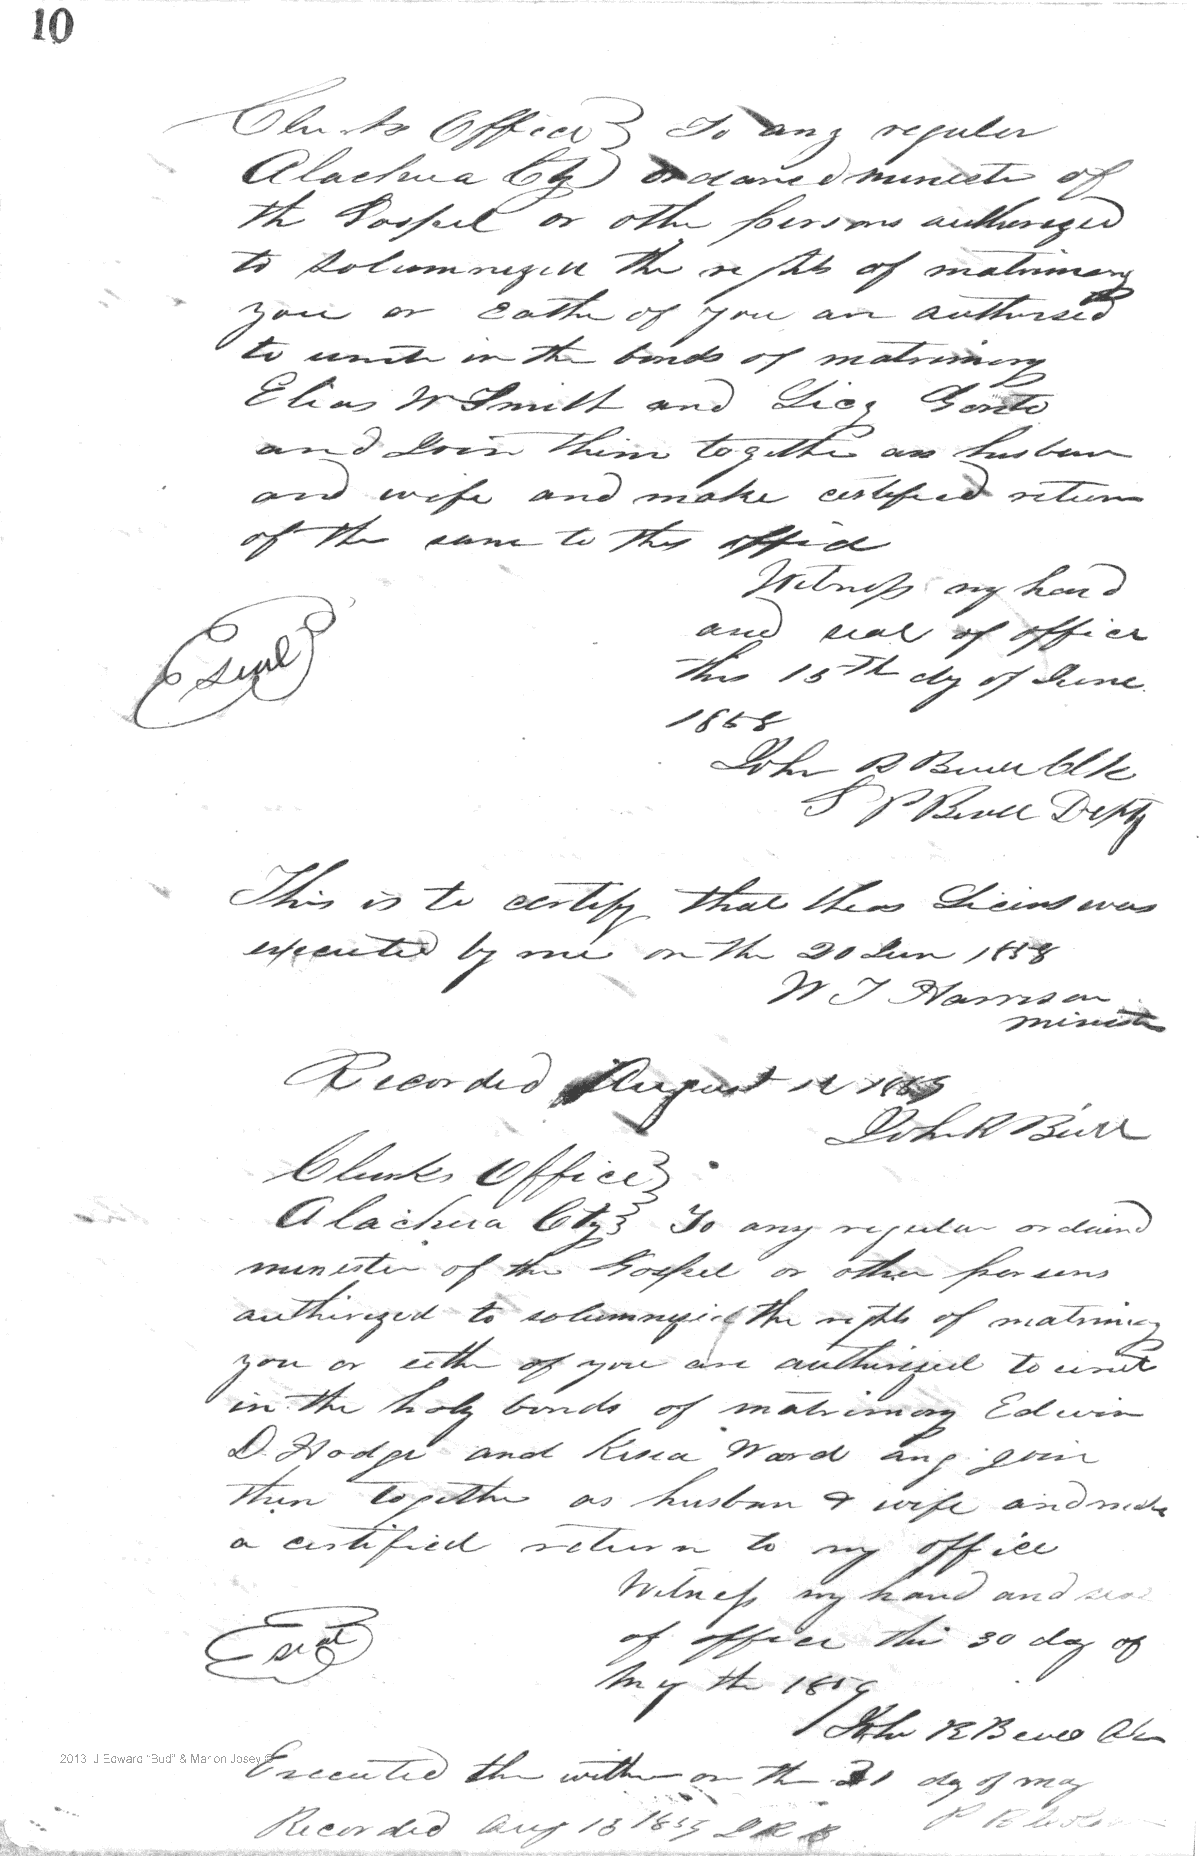 10
Clerks Office } To any regular
Alachua Cty } ordaned minister of
the Gospel or other persons authorized
to solumnize the rights of matrimony
you or eathe of you are authorised
to unite in the bonds of matrimony
Elias W Smith and
and Join them together as husban
and wife and make certified return
of the same to this office
Witness my hand
and seal of office
this 15th dy of June
1858
Seal
John R Bevill Clk
S P Bevill Depty
This is to certify that theas Licins was
executed by me on the 20 Jun 1858
W J Harrison
minister
Recorded August 12 1859
John R Bevill
Clerks Office }
Alachua Cty } To any regular ordaind
minister of the Gospel or other persons
authirized to solumnize the rights of matrimony
you or eithe of you are authirized to unite
in the holy bonds of matrimony Edwin
D. Hodge and Ward and join
them together as husban & wife and make
a certified return to my office
Witness my hand and seal
of office this 30 day of
May the 1859
Seal
John R Bevill
2013 J Edward "Bud" & Marion Josey ©
Executed the within on the 31 day of may
Recorded Aug 13 1859 J R B